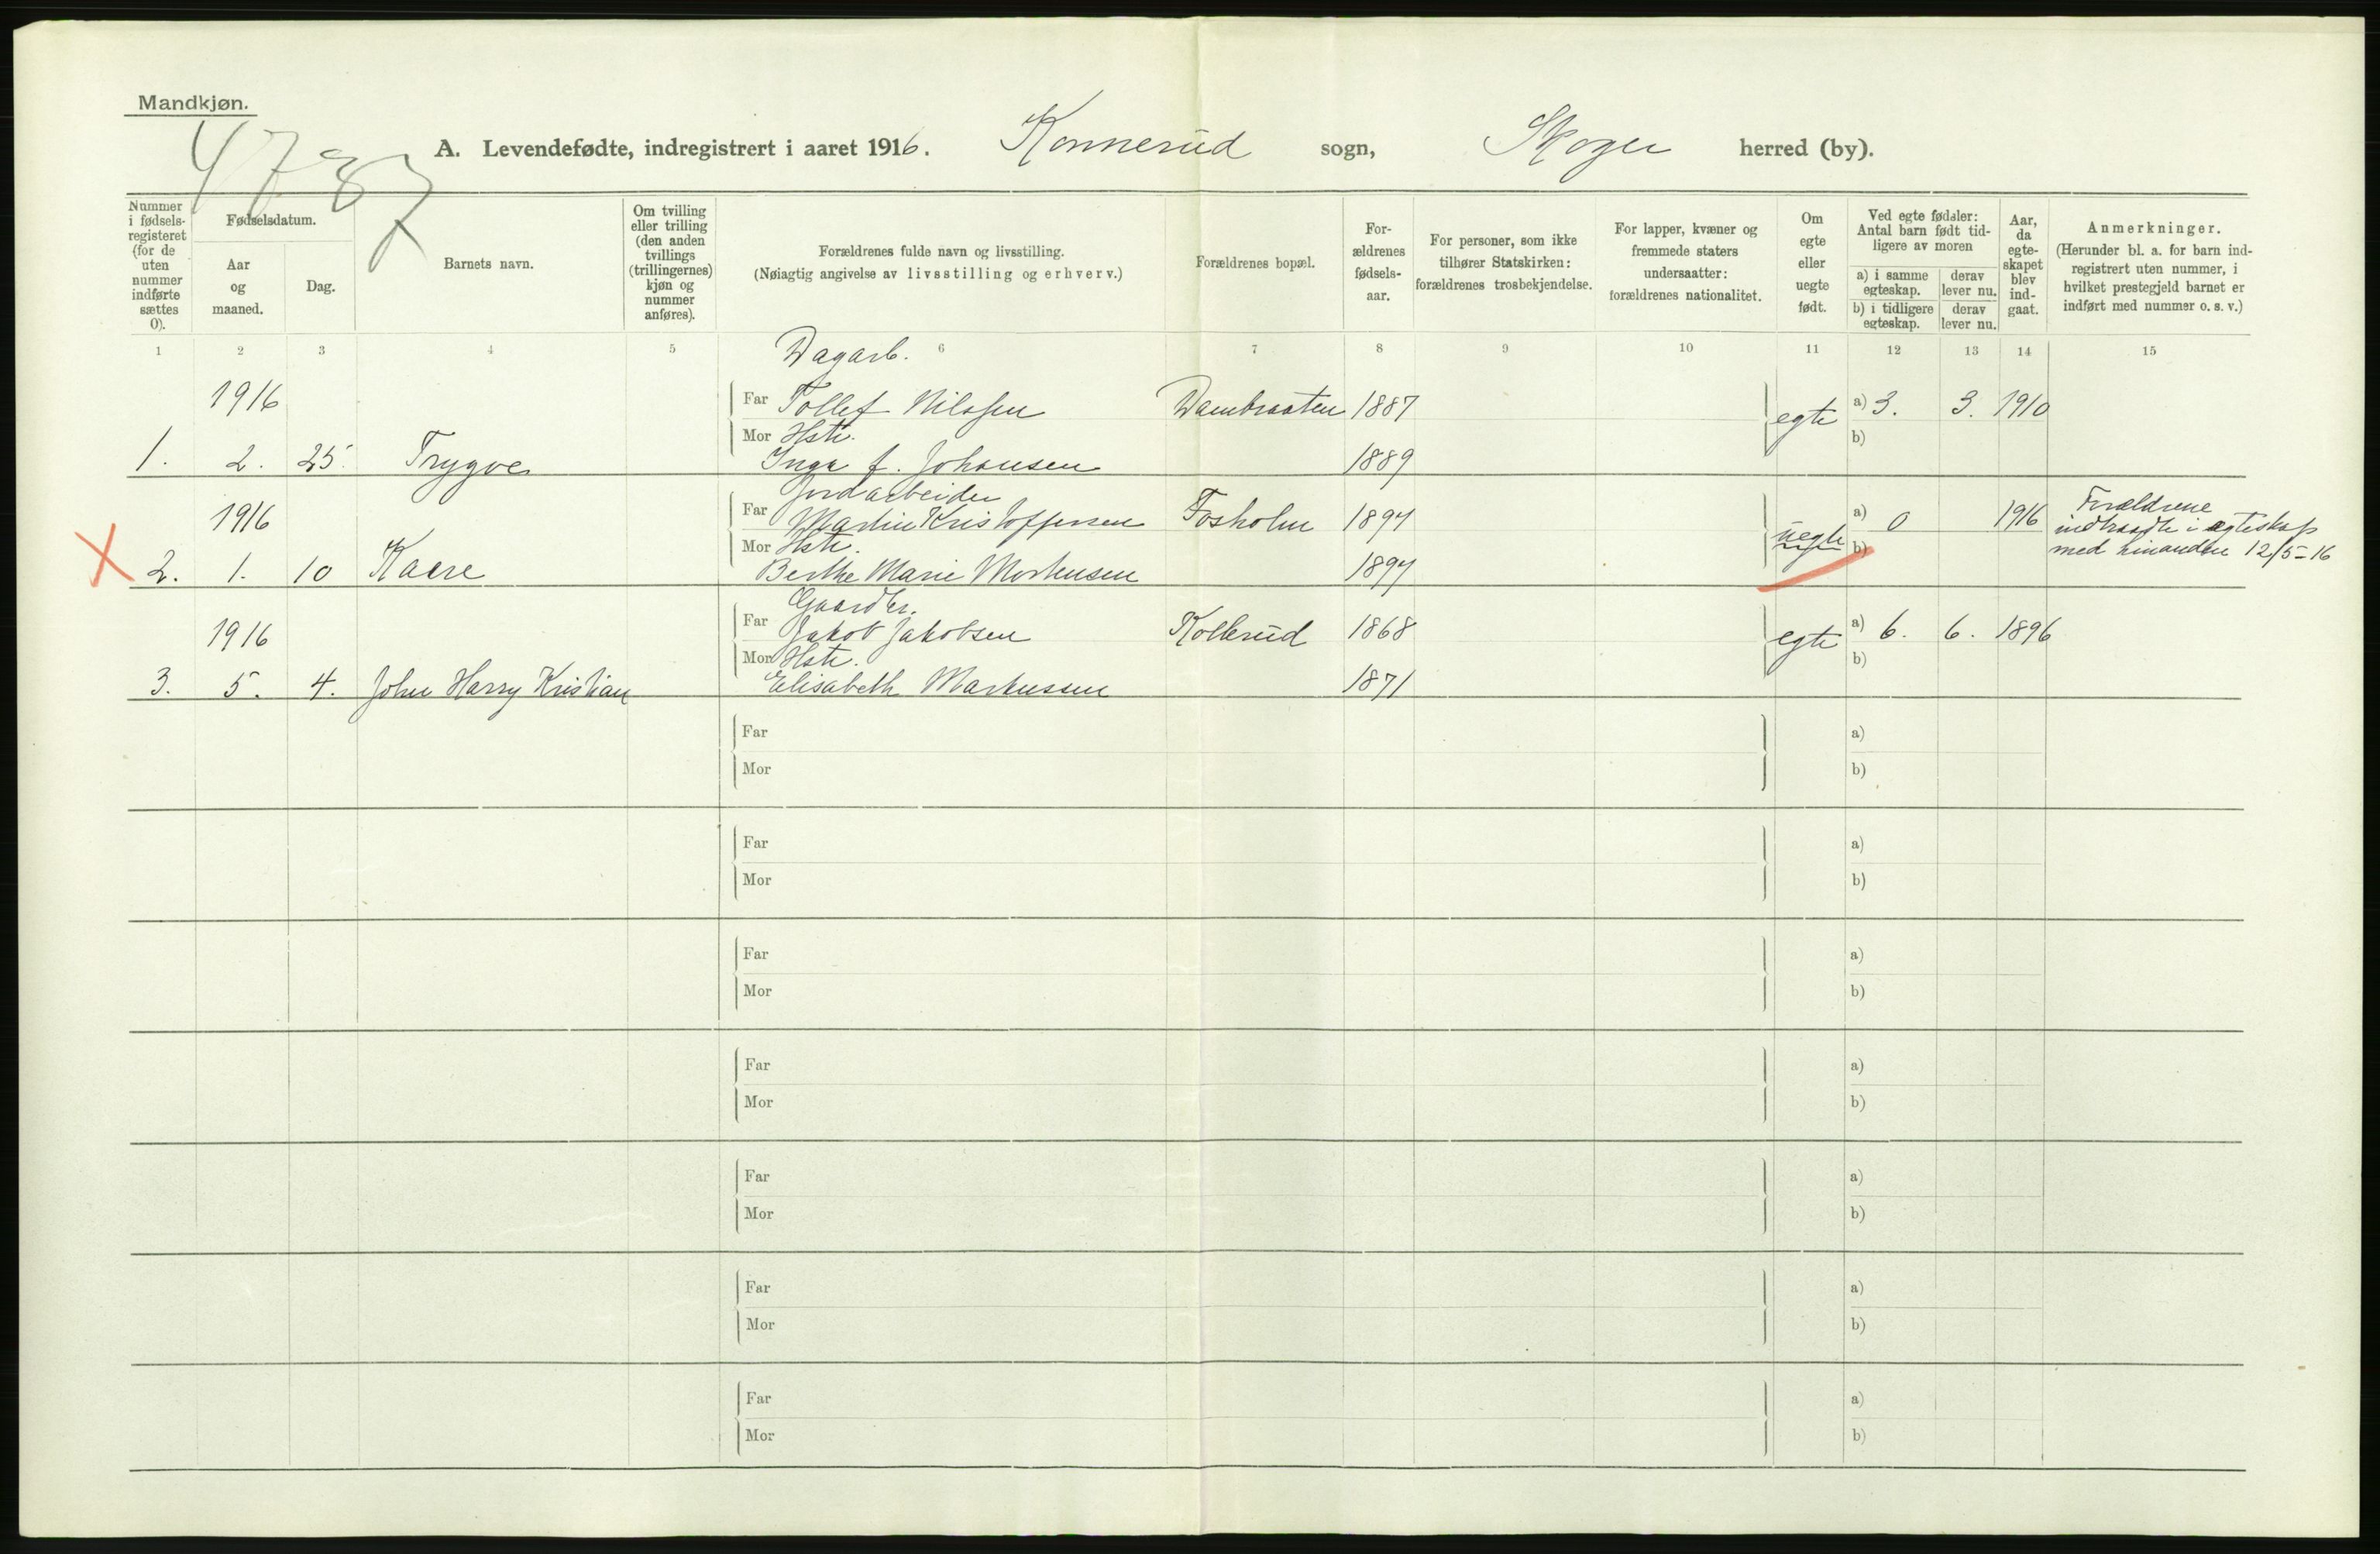 Mandkjøn.
4787
A. Levendefødte, indregistrert i aaret 1916. Konnerud sogn, Skoger herred (by).
Nummer i fødsels-registeret (for de uten nummer indførte sættes 0).
Fødselsdatum.
Aar og maaned.
Dag.
Barnets navn.
Om tvilling eller trilling (den anden tvillings (trillingernes) kjøn og nummer anføres).
Forældrenes fulde navn og livsstilling.
(Nøiagtig angivelse av livsstilling og erhverv.)
Forældrenes bopæl.
For-ældrenes fødsels-aar.
For personer, som ikke tilhører Statskirken: forældrenes trosbekjendelse.
For lapper, kvæner og fremmede staters undersaatter: forældrenes nationalitet.
Om egte eller uegte født.
Ved egte fødsler: Antal barn født tid-ligere av moren
a) i samme egteskap.
derav lever nu.
b) i tidligere egteskap.
derav lever nu.
Aar, da egte-skapet blev ind-gaat.
Anmerkninger.
(Herunder bl. a. for barn ind-registrert uten nummer, i hvilket prestegjeld barnet er indført med nummer o. s. v.)
1 2 3 4 5 6 7 8 9 10 11 12 13 14 15
Dagarb.
1916 Far Tollef Nilssen Dambraaten 1887 egte a) 3. 3. 1910
Mor Hstr. b)
1. 2. 25. Trygve Inga f. Johansen 1889
Jordarbeider
1916 Far Martin Kristoffersen Fosholm 1894 uegte a) 0 1916 Forældrene
indtraadte i egteskap
Mor Hstr. b) med hinanden 12/5-16
X 2. 1. 10 Kaare Berthe Marie Mortensen 1897
Gaardbr.
1916 Far Jakob Jakobsen Kollerud 1868 egte a) 6. 6. 1896
Mor Hstr. b)
3. 5. 4. John Harry Kristian Elisabeth Markussen 1871
Far a)
Mor b)
Far a)
Mor b)
Far a)
Mor b)
Far a)
Mor b)
Far a)
Mor b)
Far a)
Mor b)
Far a)
Mor b)